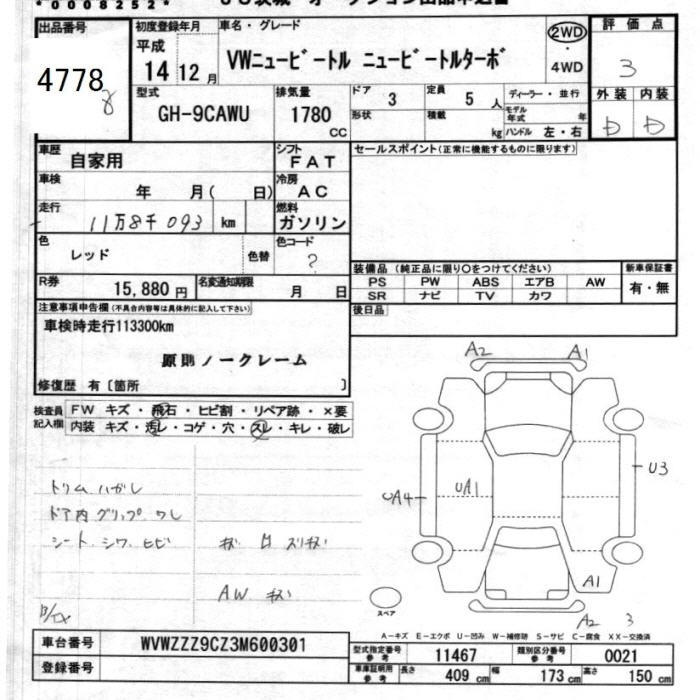 *0008252*
出品番号
4778
8
初度登録年月
平成
14 12 月
車名・グレード
VWニュービートル ニュービートルターボ
2WD
・
4WD
評価点
3
型式
GH-9CAWU
排気量
1780
CC
ドア
3
定員
5 人
ディーラー・並行
形状
積載
kg
モデル年式 年
ハンドル 左・右
外装 内装
D D
車歴
自家用
シフト
FAT
セールスポイント(正常に機能するものに限ります)
車検
年 月( 日)
冷房
AC
走行
11万8千093 km
燃料
ガソリン
色
レッド
色替
色コード
?
R券
15,880 円
名変通知期限
月 日
装備品(純正品に限り○をつけてください)
PS PW ABS エアB AW
SR ナビ TV カワ
新車保証書
有・無
後日品
注意事項申告欄(不具合内容等は具体的に記入して下さい)
車検時走行113300km
原則ノークレーム
修復歴 有〔箇所 〕
検査員記入欄
FW キズ・飛石・ヒビ割・リペア跡・×要
内装 キズ・汚レ・コゲ・穴・スレ・キレ・破レ
トリムハガレ
ドア内グリップワレ
シート、シワ、ヒビ
キズ
スリキズ
AW キズ
A2
A1
U3
UA4
UA1
A1
A2
3
スペア
A-キズ E-エクボ U-凹み W-補修跡 S-サビ C-腐食 XX-交換済
車台番号
WVWZZZ9CZ3M600301
型式指定番号
参考
11467
類別区分番号
参考
0021
登録番号
車庫証明用
参考
長さ 409 cm
幅 173 cm
高さ 150 cm